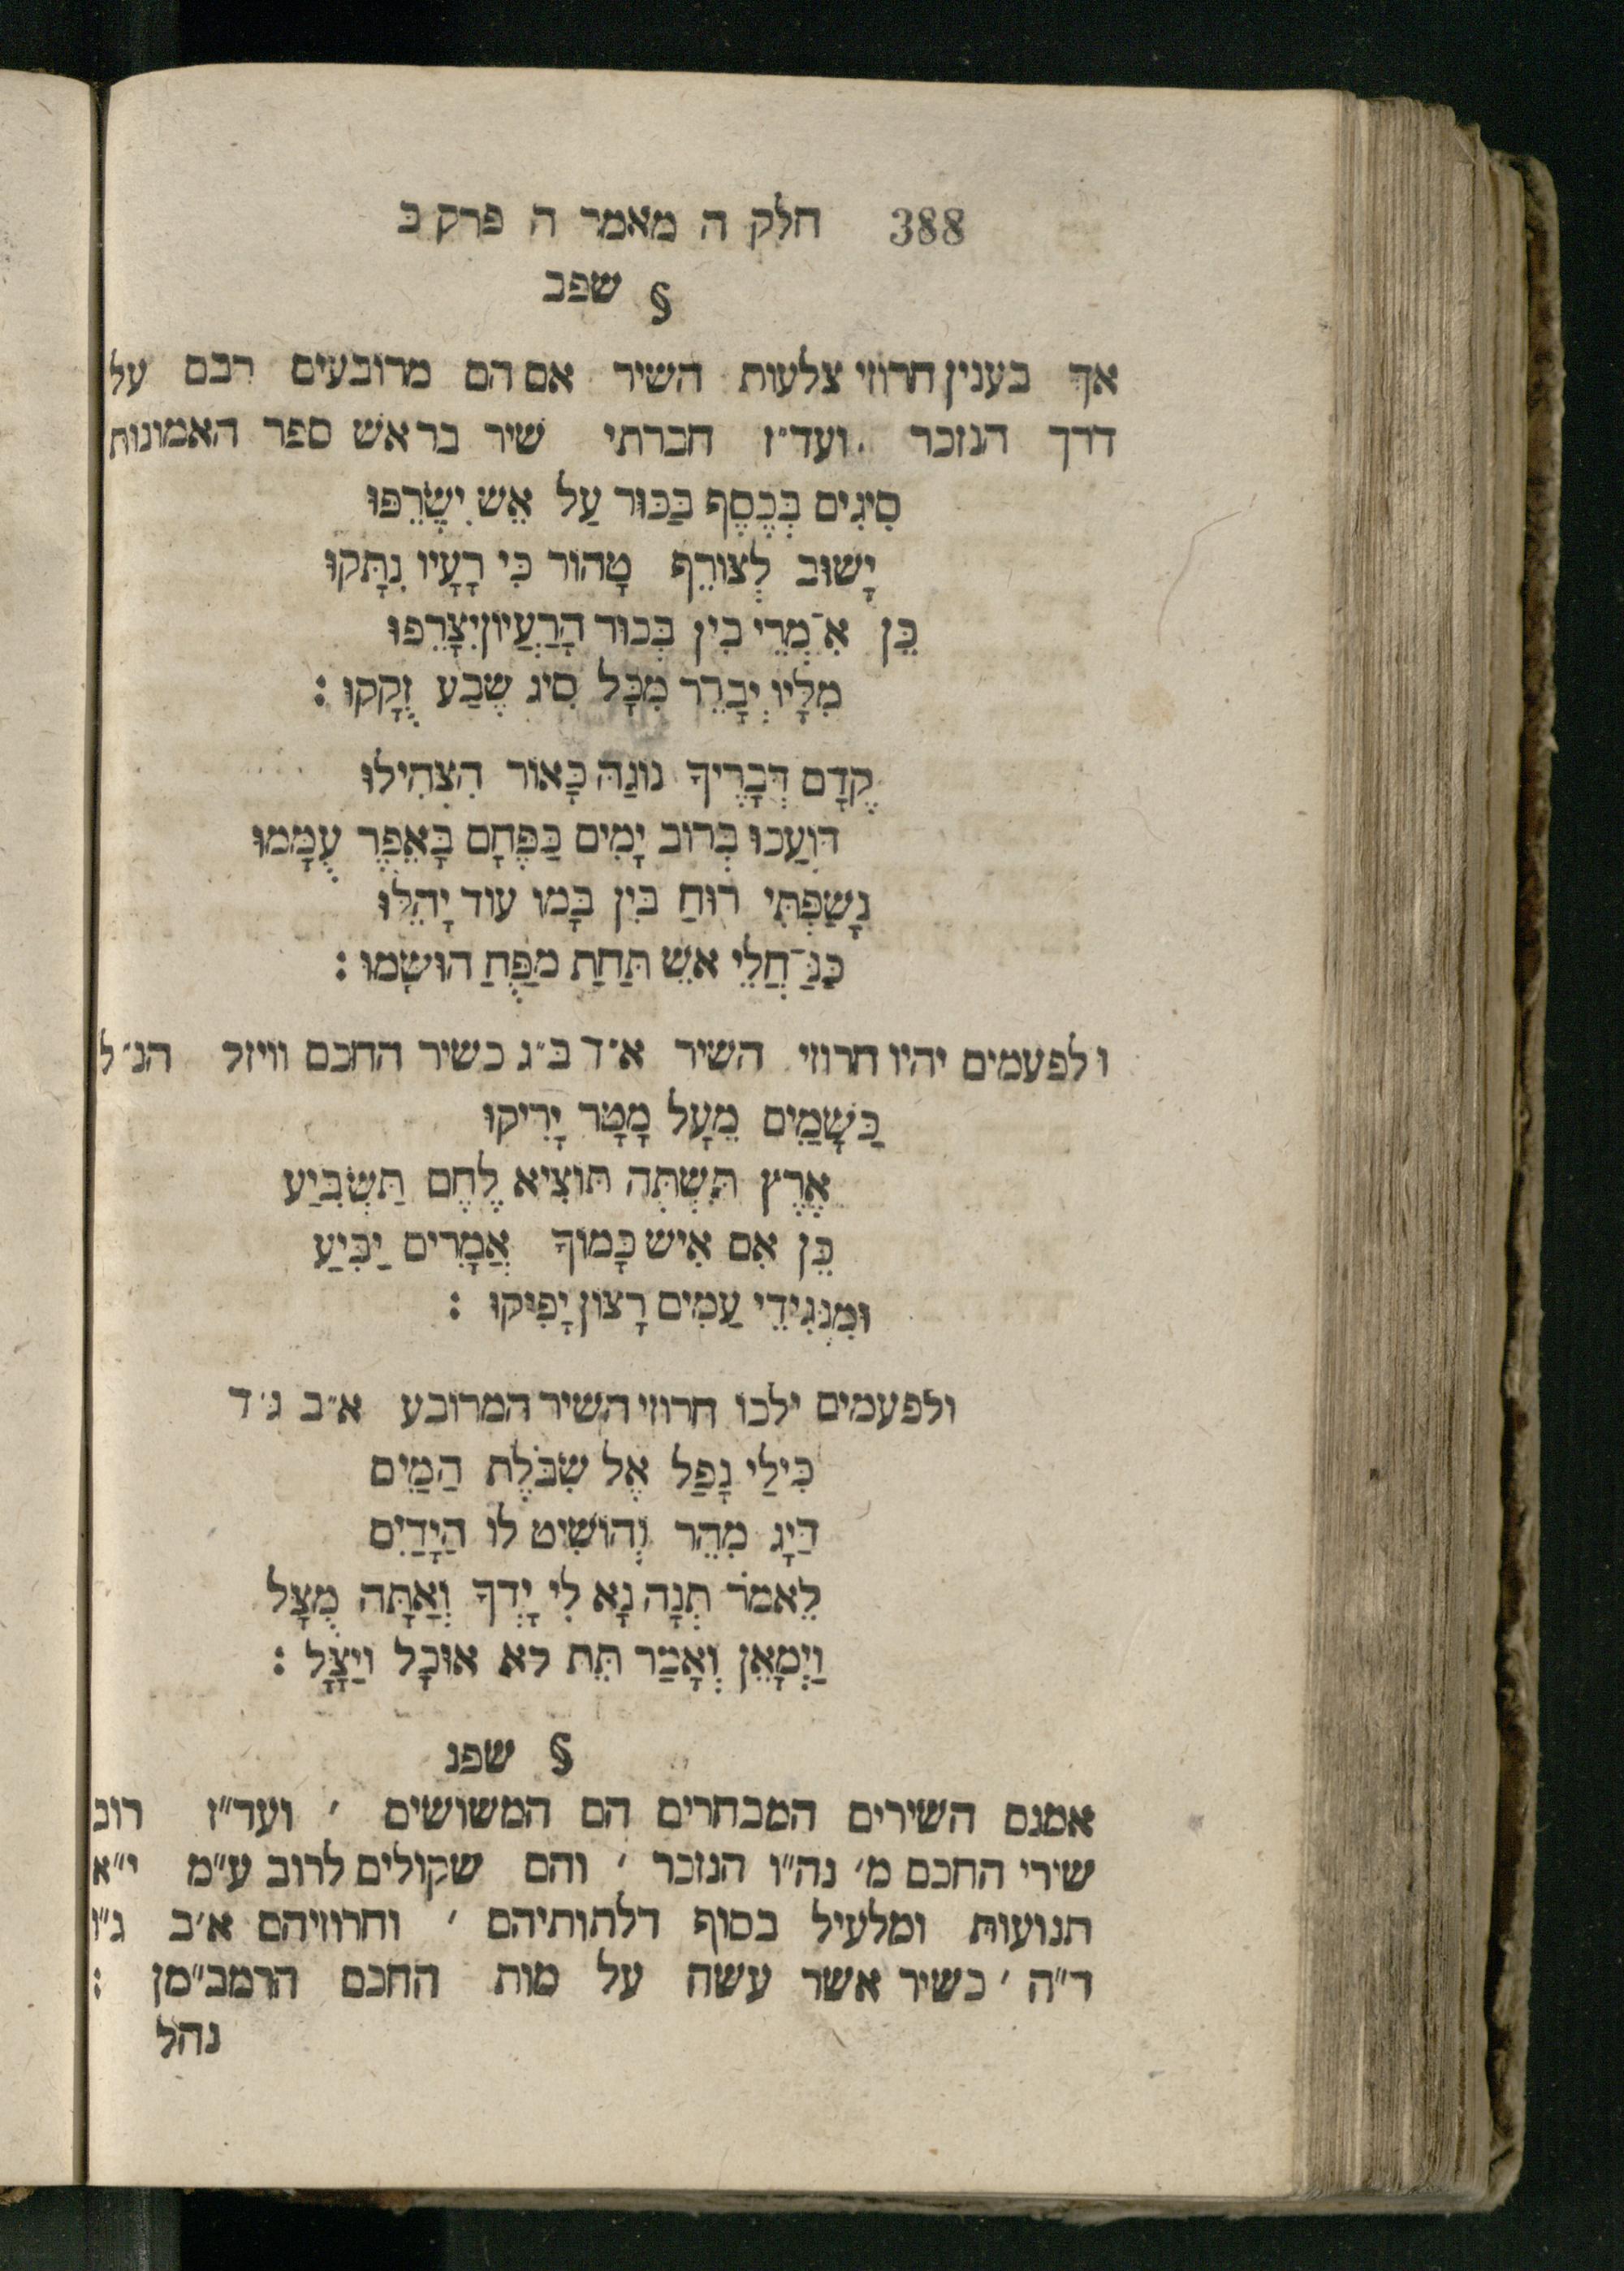 388 חלק ה מאמר ה פרק ב
§ שפב
אך בענין חרוזי צלעות השיר אם הם מרובעים רבם על
דרך הנזכר . ועד״ז חברתי שיר בראש ספר האמונות
סִיגִים בְּכֶסֶף בַּכּוּר עַל אֵשׁ יִשָּׂרֵפוּ
יָשׁוּב לְצוֹרֵף טָהוֹר כִּי רָעָיו נִתָּקוּ
כֵּן אִ־מְרֵי בִין בְּכוּר הָרַעְיוֹן יִצָּרֵפוּ
מִלָּיו יְבָרֵר מִכָּל סִיג שֶׁבַע זֻקָקוּ :
קֶדֶם דְּבָרֶיךָ נוֹגַהּ כָּאוֹר הִצְהִילוּ
דּוֹעֲכוּ בְּרוֹב יָמִים כַּפֶּחָם בָּאֵפֶר עֻמָּמוּ
נָשַׁפְתִּי רוּחַ בִּין בָּמוֹ עוֹד יָהֵלּוּ
כַּגַּ־חֲלֵי אֵשׁ תַּחַת מַפֻּחַ הוּשָׂמוּ :
ולפעמים יהיו חרוזי השיר א״ד ב״ג כשיר החכם וויזל הנ״ל
כַּשָּׁמַיִם מֵעָל מָטָר יָרִיקוּ
אֶרֶץ תִּשְׁתֶּה תּוֹצִיא לֶחֶם תַּשְׂבִּיעַ
כֵּן אִם אִישׁ כָּמוֹךָ אֲמָרִים יַבִּיעַ
וּמִנְּגִידֵי עַמִים רָצוֹן יָפִיקוּ :
ולפעמים ילכו חרוזי השיר המרובע א״ב ג״ד
כִּילַי נָפַל אֶל שִׁבֹּלֶת הַמַּיִם
דַּיָּג מִהֵר וְהוֹשִׁיט לוֹ הַיָּדַיִם
לֵאמֹר תְּנָה נָא לִי יָדְךָ וְאַתָּה מֻצָּל
וַיְמָאֵן וְאָמַר תֵּת לֹא אוּכָל וַיֻּצָּל :
§ שפג
אמנם השירים המבחרים הם המשושים ׳ ועד״ז רוב
שירי החכם מ׳ נה״ו הנזכר ׳ והם שקולים לרוב ע״מ י״א
תנועות ומלעיל בסוף דלתותיהם ׳ וחרוזיהם א״ב ג״ו
ד״ה ׳ כשיר אשר עשה על מות החכם הרמב״מן :
נהל